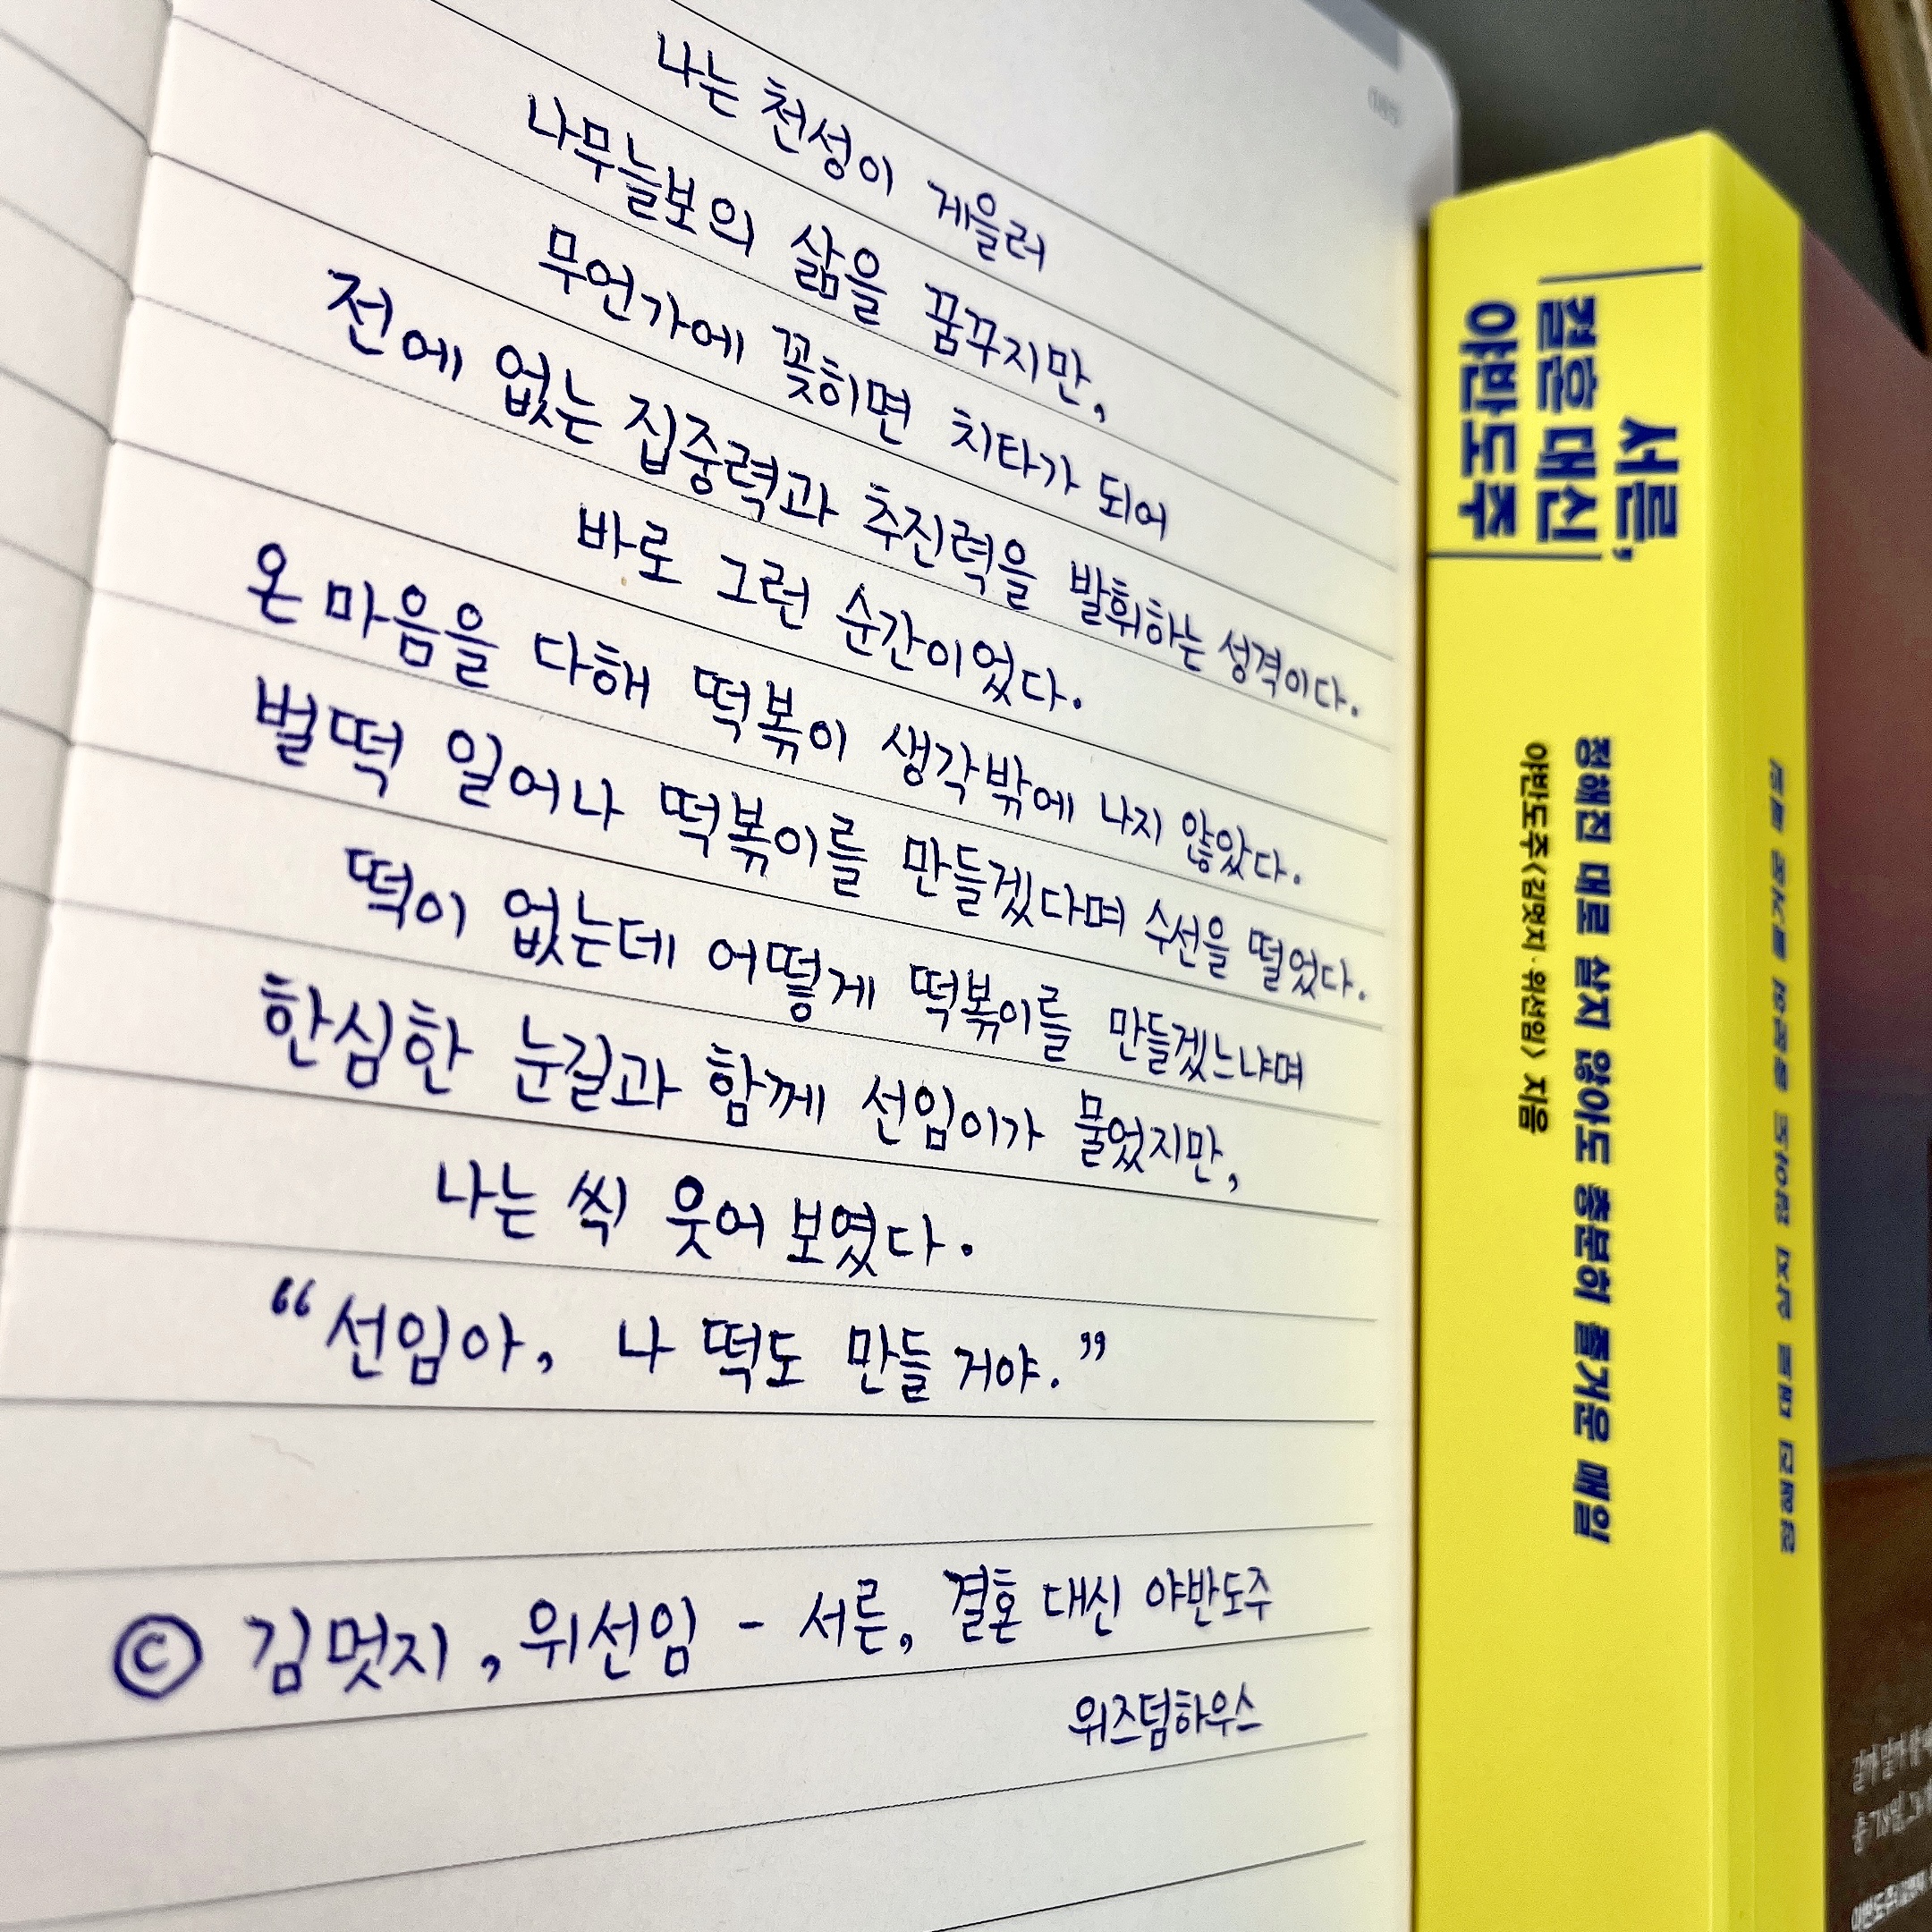 나는 천성이 게을러
나무늘보의 삶을 꿈꾸지만,
무언가에 꽂히면 치타가 되어
전에 없는 집중력과 추진력을 발휘하는 성격이다.
바로 그런 순간이었다.
온 마음을 다해 떡볶이 생각밖에 나지 않았다.
벌떡 일어나 떡볶이를 만들겠다며 수선을 떨었다.
떡이 없는데 어떻게 떡볶이를 만들겠느냐며
한심한 눈길과 함께 선임이가 물었지만,
나는 씩 웃어 보였다.
“선임아, 나 떡도 만들 거야.”
© 김멋지, 위선임 - 서른, 결혼 대신 야반도주
위즈덤하우스
서른,
결혼 대신
야반도주
정해진 대로 살지 않아도 충분히 즐거운 매일
야반도주<김멋지·위선임> 지음